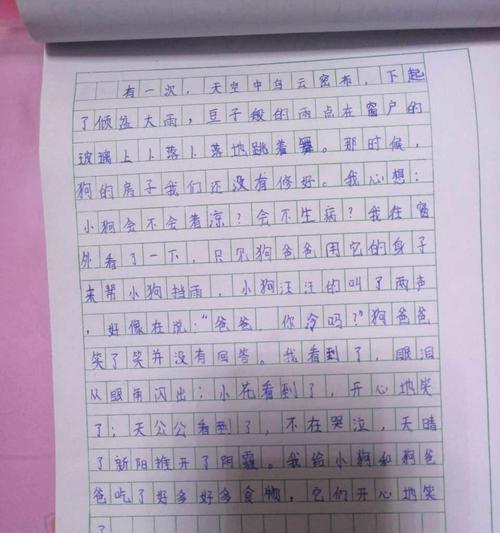 有一次，天空中乌云密布，下起
了倾盆大雨，豆子般的雨点在窗户的
玻璃上卜落卜落地跳着舞。那时候，
狗的房子我们还没有修好。我心想：
小狗会不会着凉？会不生病？我在窗
外看了一下，只见狗爸爸用它的身子
来帮小狗挡雨，小狗汪汪的叫了两声
，好像在说：“爸爸，你冷吗？”狗爸爸
笑了笑并没有回答。我看到了，眼泪
从眼角闪出；小花看到了，开心地笑
了；天公公看到了，不在哭泣，天晴
了新阳推开了阴霾。我给小狗和狗爸
爸吃了好多好多食物，它们开心地笑
了